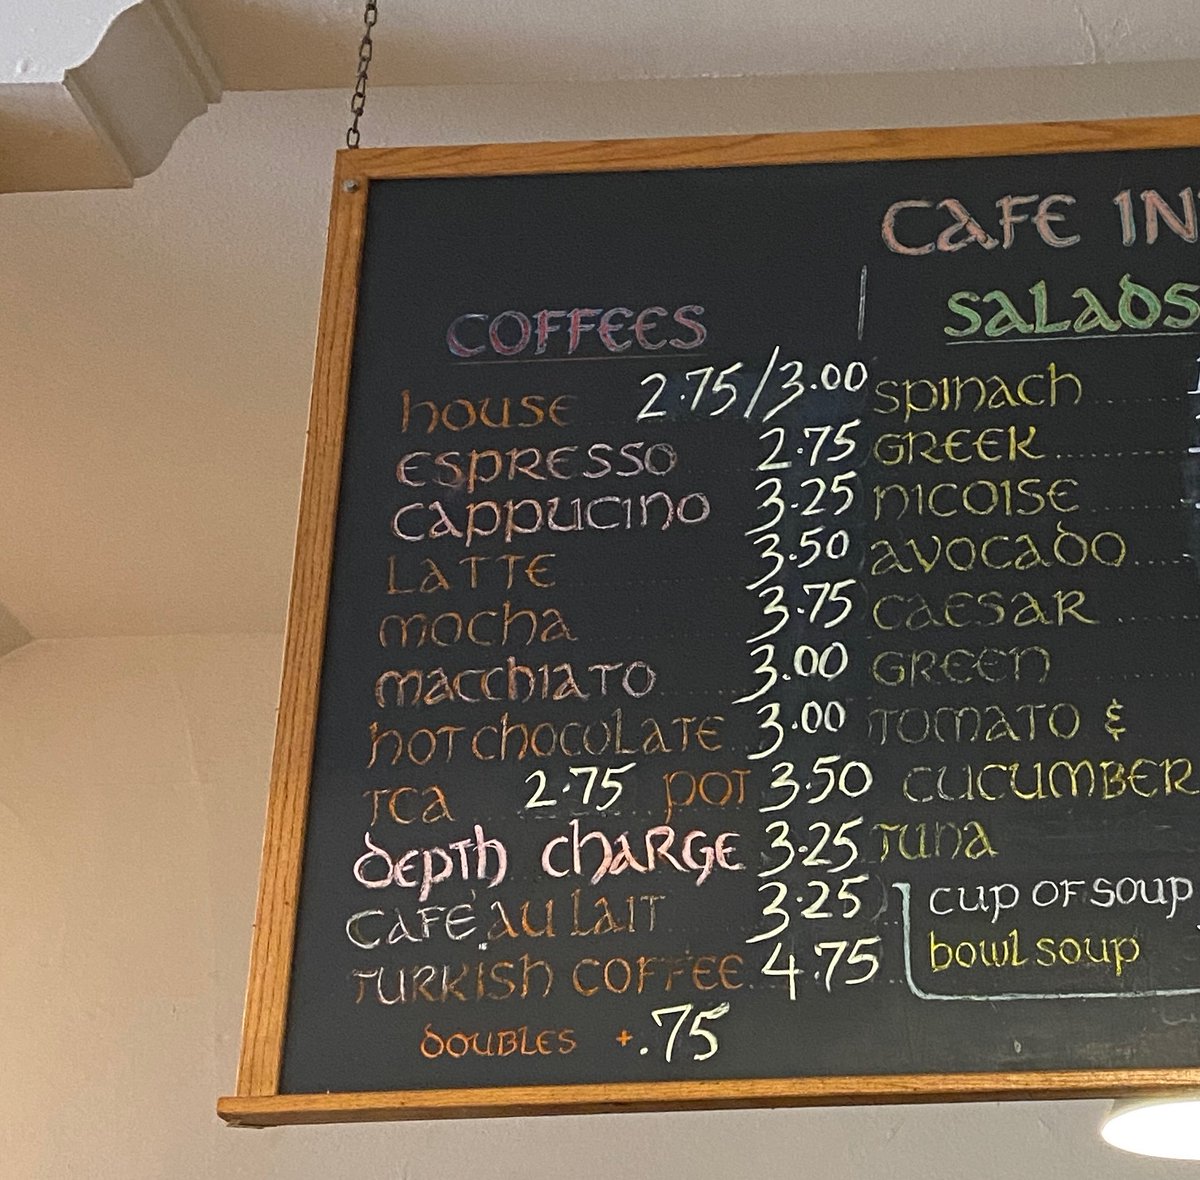 CAFE
COFFEES
SALADS
HOUSE 2.75/3.00
ESPRESSO 2.75
CAPPUCINO 3.25
LATTE 3.50
MOCHA 3.75
MACCHIATO 3.00
HOT CHOCOLATE 3.00
TEA 2.75 POT 3.50
DEPTH CHARGE 3.25
CAFÉ AU LAIT 3.25
TURKISH COFFEE 4.75
DOUBLES +.75
SPINACH
GREEK
NICOISE
AVOCADO
CAESAR
GREEN
TOMATO &
CUCUMBER
TUNA
CUP OF SOUP
BOWL SOUP